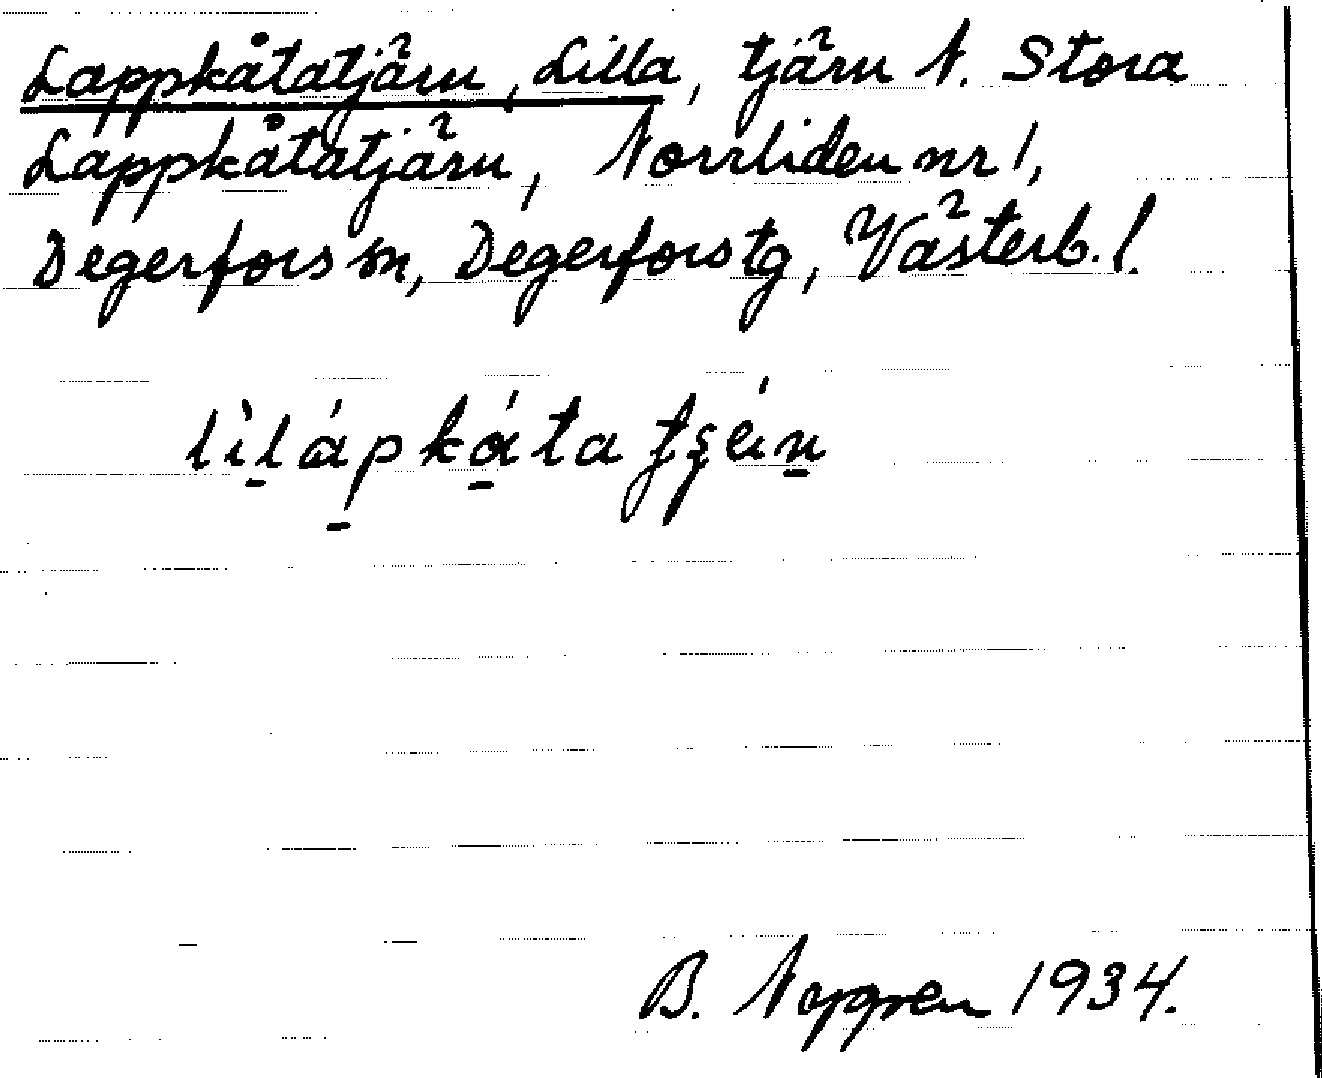 Lappkåtatjärn, Lilla, tjärn N. Stora
Lappkåtatjärn, Norrliden nr 1,
Degerfors sn, Degerfors tg, Västerb. l.
lìlápkáta
B. Nygren 1934.